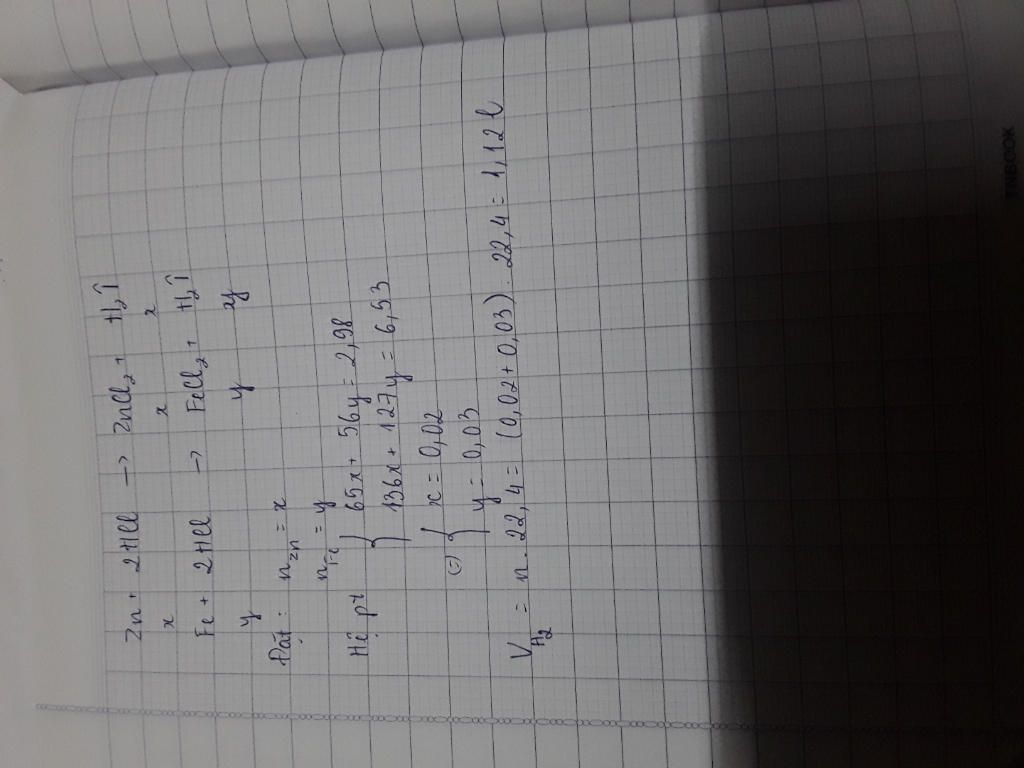 Zn + 2HCl → ZnCl₂ + H₂↑
x x x
Fe + 2HCl → FeCl₂ + H₂↑
y y y
Đặt : nZn = x
nFe = y
Hệ pt { 65x + 56y = 2,98
136x + 127y = 6,53
(=) { x = 0,02
y = 0,03
VH₂ = n . 22,4 = (0,02 + 0,03) . 22,4 = 1,12 l